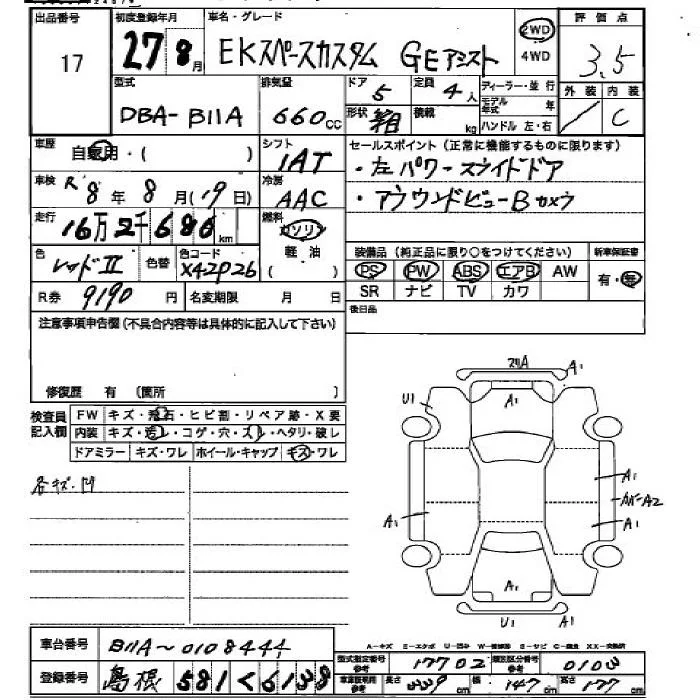 出品番号 初度登録年月 車名・グレード 2WD 4WD 評価点
17 27 8月 EKスペースカスタム GEアミスト 3.5
外装 内装
／ C
型式 排気量 ドア 定員 ディーラー・並行
DBA-B11A 660cc 5 4人 モデル年式 年
形状 箱 積載 kg ハンドル 左・右
車歴 自家用・( ) シフト 1AT
セールスポイント(正常に機能するものに限ります)
・左パワースライドドア
・アラウンドビューBカメラ
車検 R8年8月(19日) 冷房 AAC
走行 16万2千686km 燃料 ガソリン 軽油 ( )
色 レッドII 色替 色コード X42P26
装備品(純正品に限り○をつけてください) 新車保証書
PS PW ABS エアB AW 有・無
SR ナビ TV カワ
R券 9190円 名変期限 月 日
後日品
注意事項申告欄(不具合内容等は具体的に記入して下さい)
修復歴 有 [箇所 ]
検査員記入欄
FW キズ・飛石・ヒビ割・リペア跡・X要
内装 キズ・汚レ・コゲ・穴・スレ・ヘタリ・破レ
ドアミラー キズ・ワレ ホイール・キャップ キズ・ワレ
各キズ.凹
A1
U1 A1
A1
カバーA2
A1 A1
A1
U1 A1
A-キズ E-エクボ U-凹み W-補修跡 S-サビ C-腐食 XX-交換済
車台番号 B11A～0108444
型式指定番号 参考 17702 類別区分番号 参考 0103
登録番号 島根 581 く 6138
車庫証明用 参考 長さ 339cm 幅 147cm 高さ 177cm